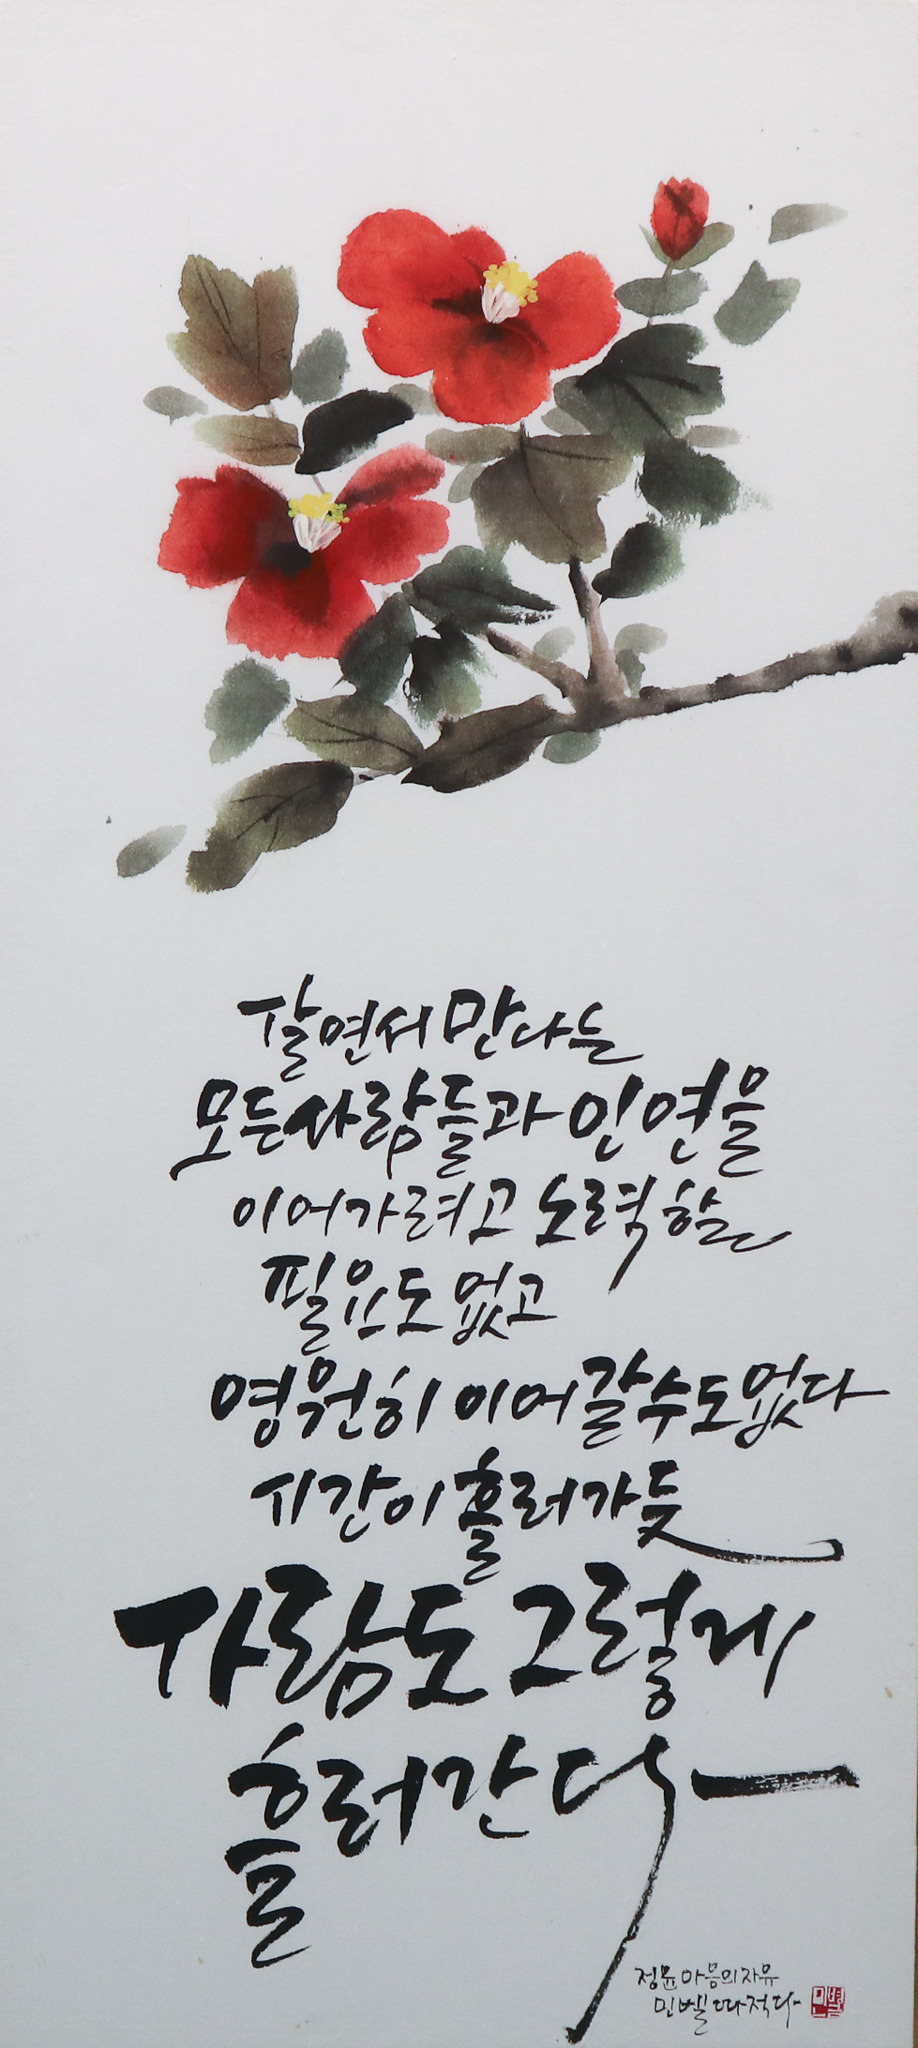 살면서 만나는
모든 사람들과 인연을
이어가려고 노력할
필요도 없고
영원히 이어갈 수도 없다
시간이 흘러가듯
사람도 그렇게
흘러간다
정윤 마음의 자유
민벨 따 적다